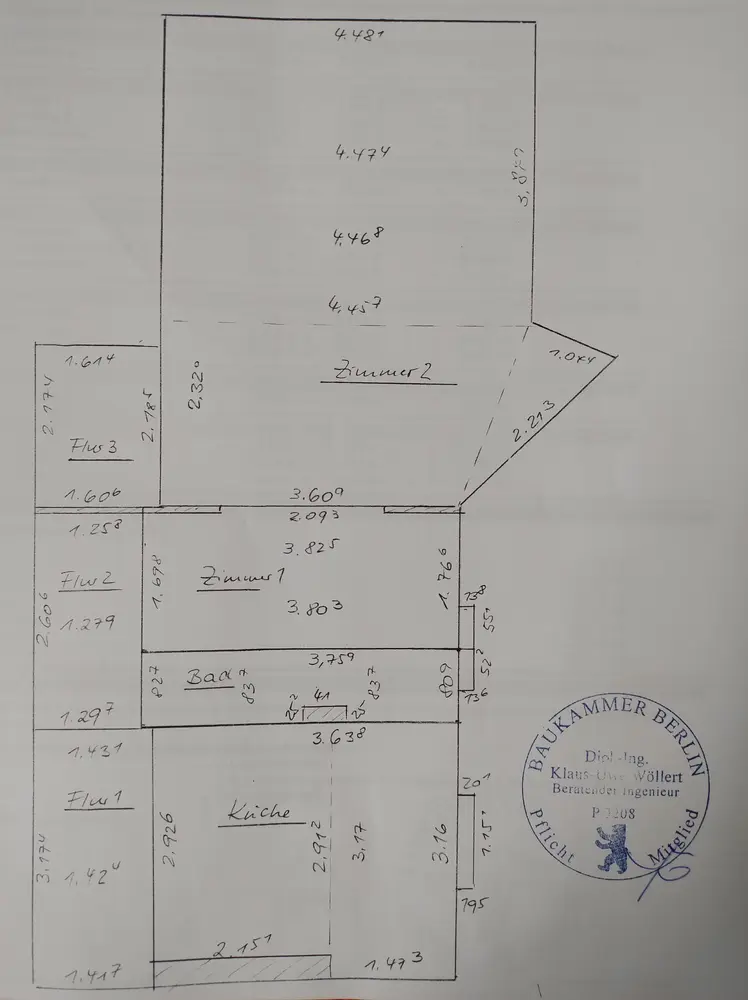 4.48¹
4.47⁴
3,87²
4.46⁸
4,45⁷
1.614
1.044
2,32⁰
Zimmer 2
2.174
2.185
2.213
Flur 3
1.60⁶
3.60⁹
2.09³
1.25⁸
3.825
1.698
1.76⁶
Flur 2
Zimmer 1
13⁸
55¹
2.60⁶
1.279
3.803
3,75⁹
52²
827
Bad
83⁷
83⁷
809
41
13⁶
1.29⁷
3.63⁸
1.431
Flur 1
Küche
20¹
2.926
2.91²
3.17
3.16
1.15¹
3.174
1.42⁴
195
2.15¹
1.47³
1.417
BAUKAMMER BERLIN
Dipl.-Ing.
Klaus-Uwe Wöllert
Beratender Ingenieur
Pflicht
Mitglied